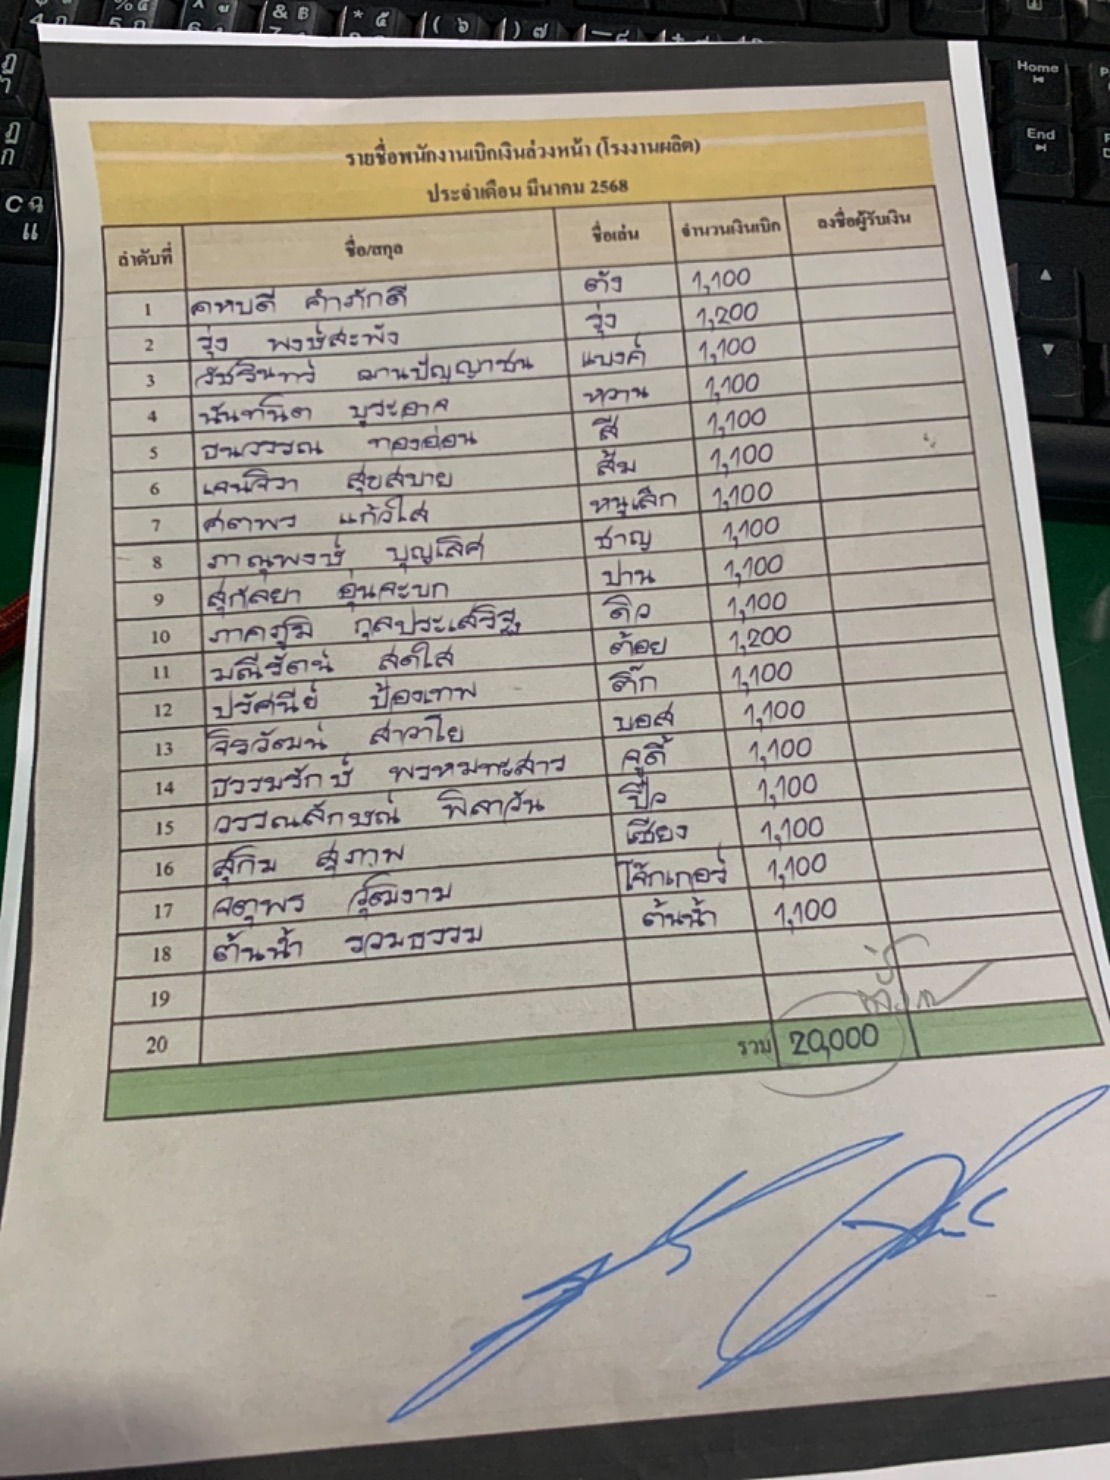 รายชื่อพนักงานเบิกเงินล่วงหน้า (โรงงานผลิต)
ประจำเดือน มีนาคม 2568
ลำดับที่ ชื่อ/สกุล ชื่อเล่น จำนวนเงินเบิก ลงชื่อผู้รับเงิน
1 คหบดี คำภักดี ตัง 1,100
2 รุ่ง พงษ์สะพัง รุ่ง 1,200
3 วัชรินทร์ ฌานปัญญาชน แบงค์ 1,100
4 นันทนิต บูระอาจ หวาน 1,100
5 ธนวรรณ ทองอ่อน สี 1,100
6 เจนจิวา สุขสบาย ส้ม 1,100
7 ศตพร แก้วใส หนูเล็ก 1,100
8 ภาณุพงษ์ บุญเลิศ ชาญ 1,100
9 สุกัลยา อุ่นจะบก ปาน 1,100
10 ภาคภูมิ กุลประเสริฐ ดิว 1,100
11 มณีรัตน์ สดใส ต้อย 1,200
12 ปรัศนีย์ ป้องเทพ ติ๊ก 1,100
13 จิรวัฒน์ สาวาโย บอส 1,100
14 ธรรมรักษ์ พรหมทะสาร จูดี้ 1,100
15 วรรณลักษณ์ พิลาวัน ปิ๋ว 1,100
16 สุกิม สุภาพ เซียง 1,100
17 จตุพร วุฒิงาม โจ๊กเกอร์ 1,100
18 ต้นน้ำ รวมธรรม ต้นน้ำ 1,100
19
20
รวม 20,000